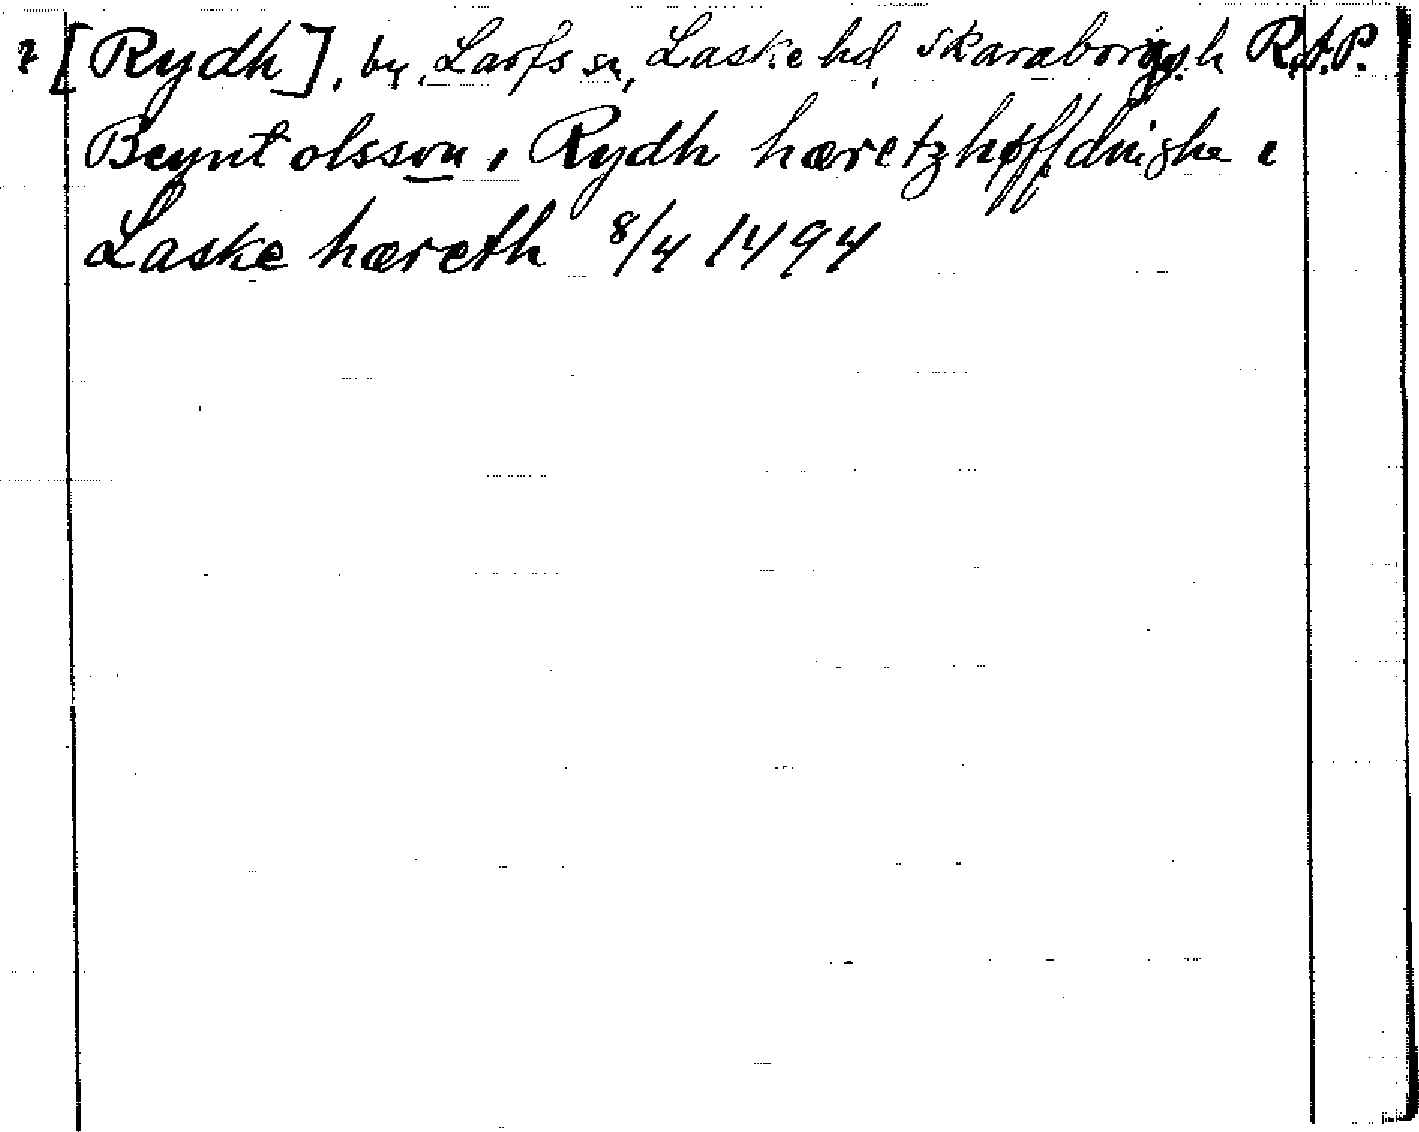 ? [Rydh], by, Larfs sn, Laske hd, Skaraborgs h R.A.P.
Beynt olsson i Rydh hæretzhøffdinghe i
Laske hæreth 8/4 1494